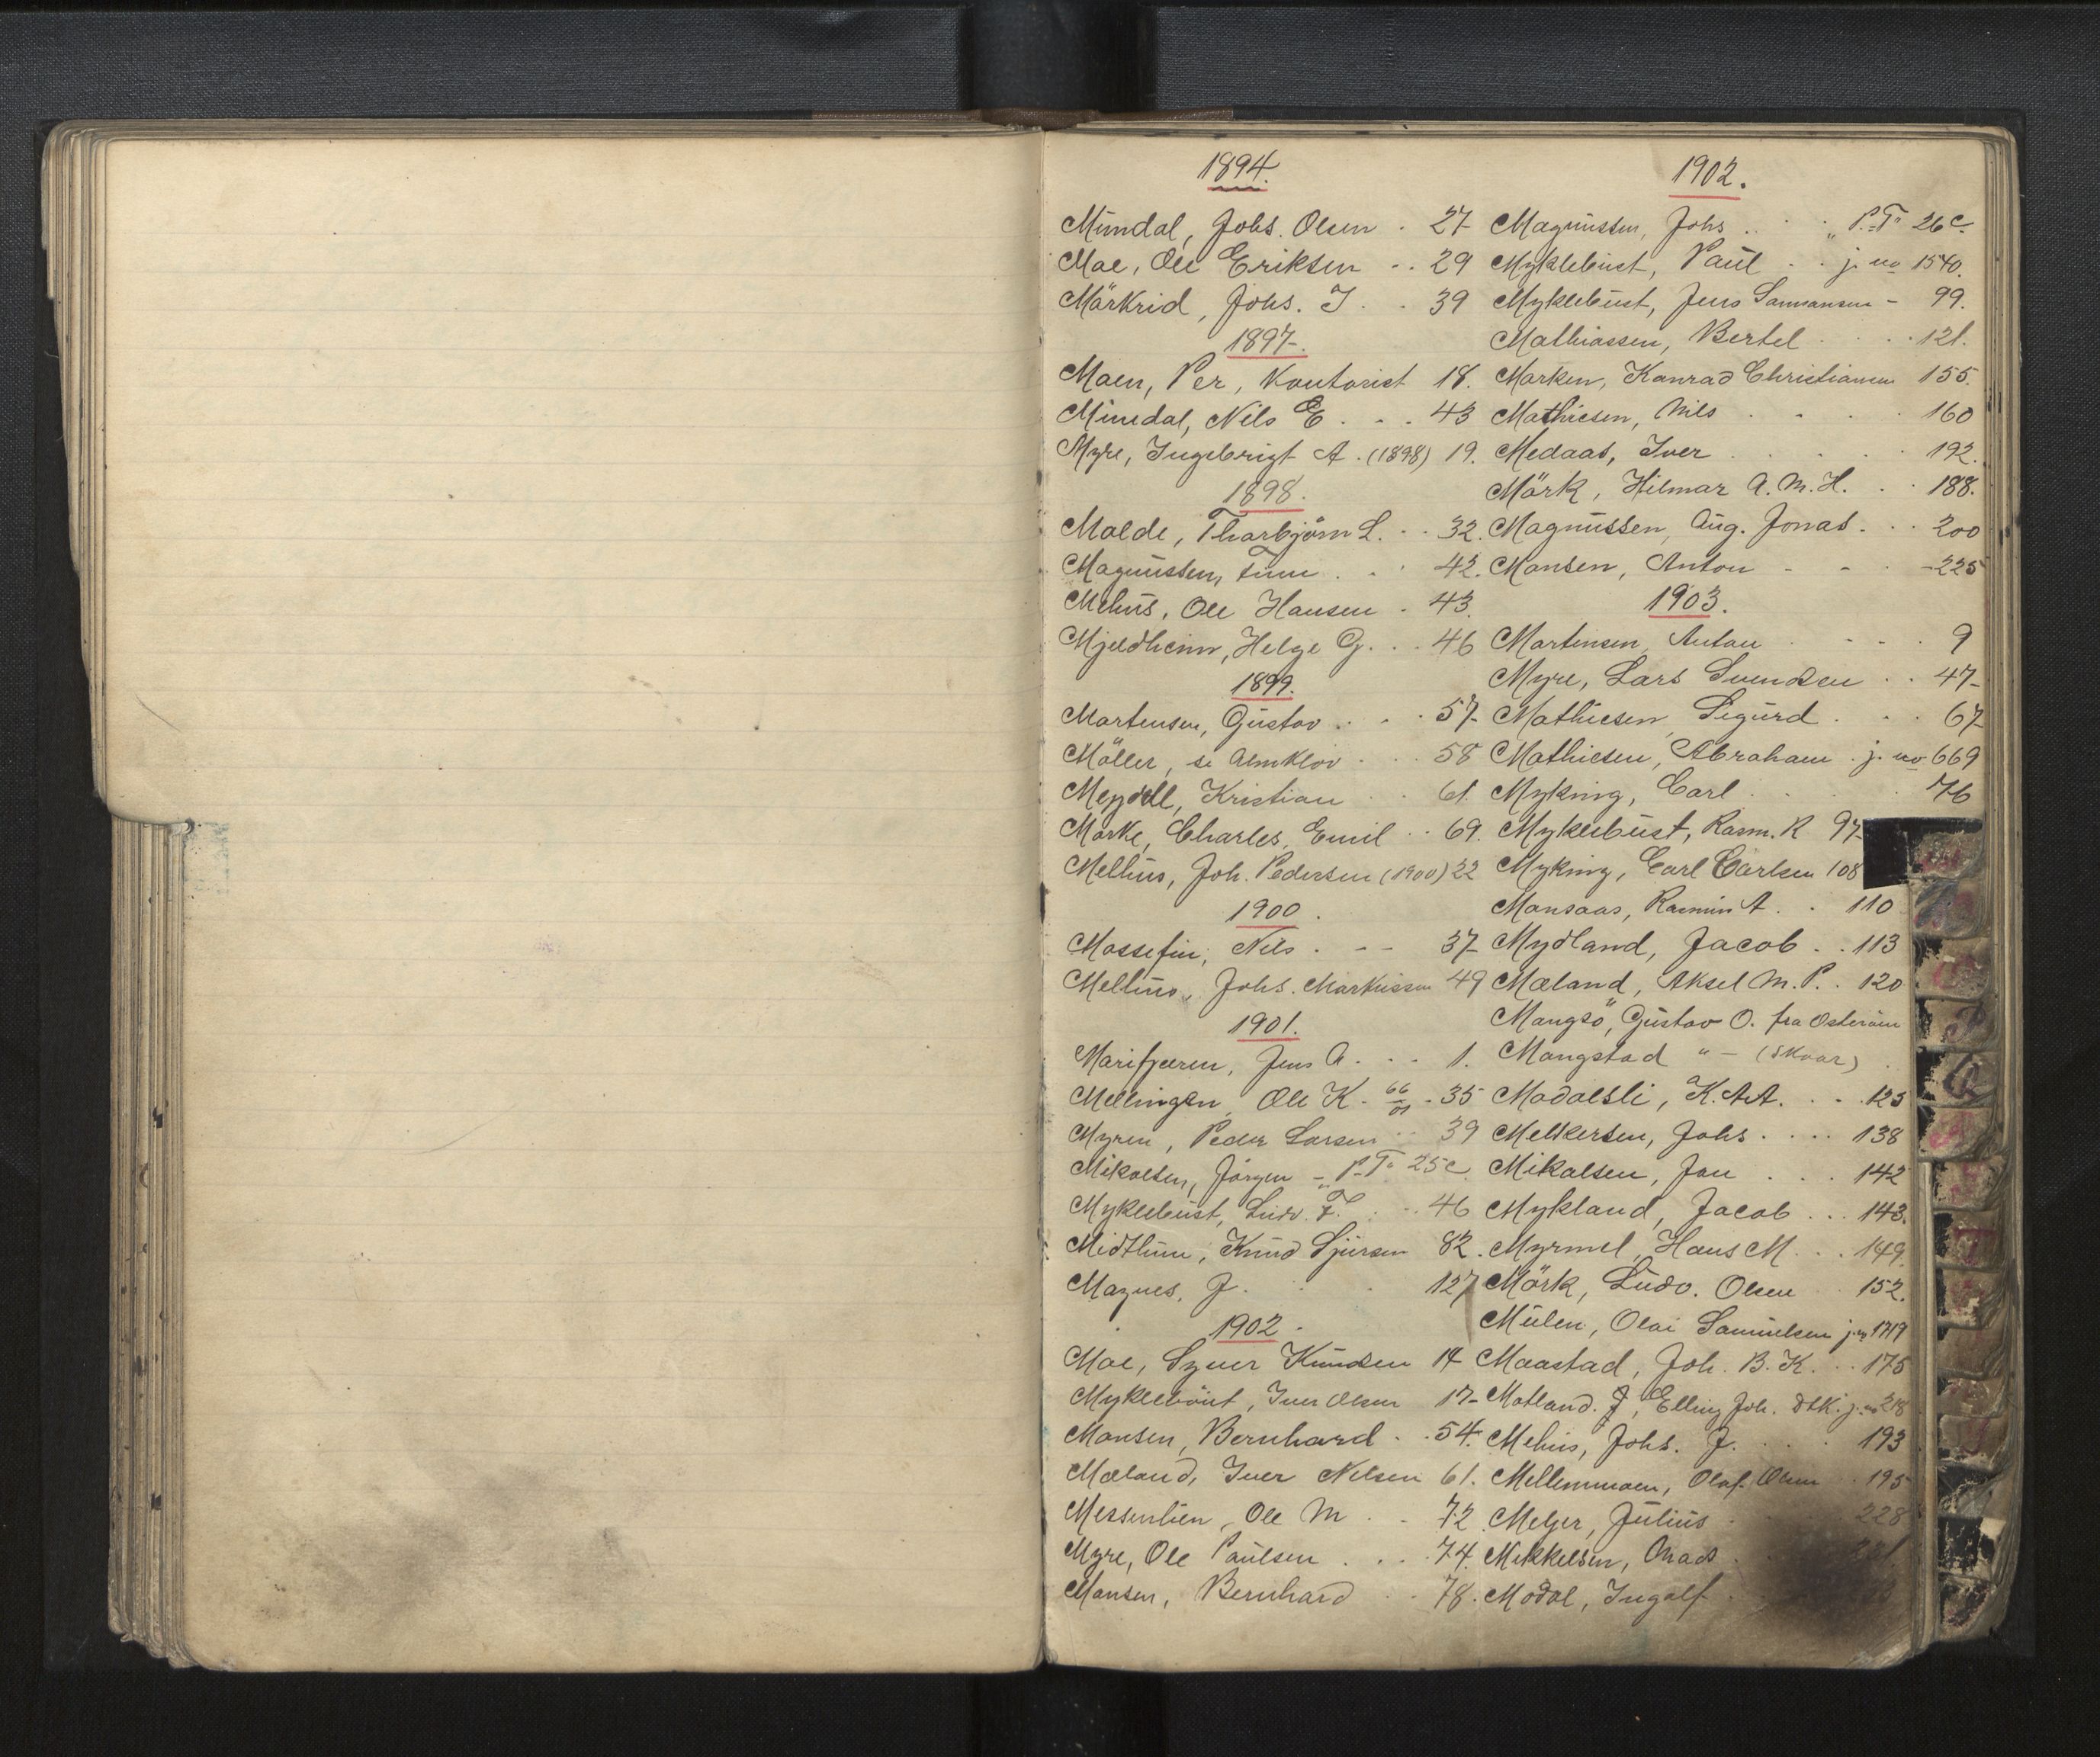 1894.
Mundal, Johs. Olsen . 27
Moe, Ole Eriksen .. 29
Mörkrid, Johs. I . . 39
1897.
Moen, Per, Kontorist 18.
Mundal, Nils E . . . 43
Myre, Ingebrigt A. (1898) 19.
1898.
Molde, Thorbjörn L. .. 32.
Magnussen, . . . 42.
Mehus, Ole Hansen . 43.
Mjeldheim, Helge G. . . 46
1899.
Martensen, Gustav . . . 57
Möller, se Almklov . . 58
Meydell, Kristian . . 61.
Morke, Charles Emil .. 69.
Melhus, Joh. Pedersen (1900) 22
1900.
Mossefin, Nils . - - 37
Melhus, Johs. Markussen 49
1901.
Marifjæren, Jens A . . . 1.
Mellingen, Ole K - 66/01 . 35
Myren, Peder Larsen .. 39
Mikalsen, Jörgen - „P.T“ 25 c.
Myklebust, Ludv. F. . .. 46
Midthun, Knud Sjursen 82.
Magnes, J . . . 127
1902.
Moe, Synes Knudsen 14
Mykleböust, Iver Olsen 17
Monsen, Bernhard . . 54.
Mæland, Iver Nilsen 61.
Messenlien, Ole M . . 72.
Myre, Ole Paulsen . . . 74.
Monsen, Bernhard . . 78.
1902.
Magnussen, Johs . . . „P.T“ 26 c.
Myklebust, Paul . . j. no 1540.
Myklebust, Jens Samansen - 99.
Mathiassen, Bertel . . . . 121.
Marken, Konrad Christiansen 155.
Mathiesen, Nils . . . . 160
Medaas, Iver . . . . . 192.
Mörk, Hilmar A. M. H. . . 188.
Magnussen, Aug. Jonas . . . 200
Monsen, Anton - - . - 225
1903.
Martinsen, Anton . - - . 9
Myre, Lars Svendsen . . 47
Mathiesen, Sigurd . . . 67
Mathiesen, Abraham . j. no 669
Myking, Carl . . . . . 76
Myklebust, Rasm. R 97
Myking, Carl Carlsen 108
Monsaas, A. . 110
Mydland, Jacob . . 113
Mæland, Aksel M. P. . 120
Mangsö, Gustav O. fra Osteröen
Mangstad " - (Skoar) .
Modalsli, K. A. A. . . . 123
Melkersen, Johs . . . . 138
Mikalsen, Jon . . . 142
Mykland, Jacob . . . 143.
Myrmel, Hans M. . . 149.
Mörk, Ludv. Olsen . . 152.
Mülen, Olai Samuelsen j. no 1719
Maastad, Joh. B. K. . . 175
Motland. J, Elling Joh. j. no 218
Mehus, Johs. J. . . . 193
Mellemmoen, Olaf Olsen . 195
Meljer, Julius . . . 228
Mikkelsen, Mads .
Modal, Ingolf .